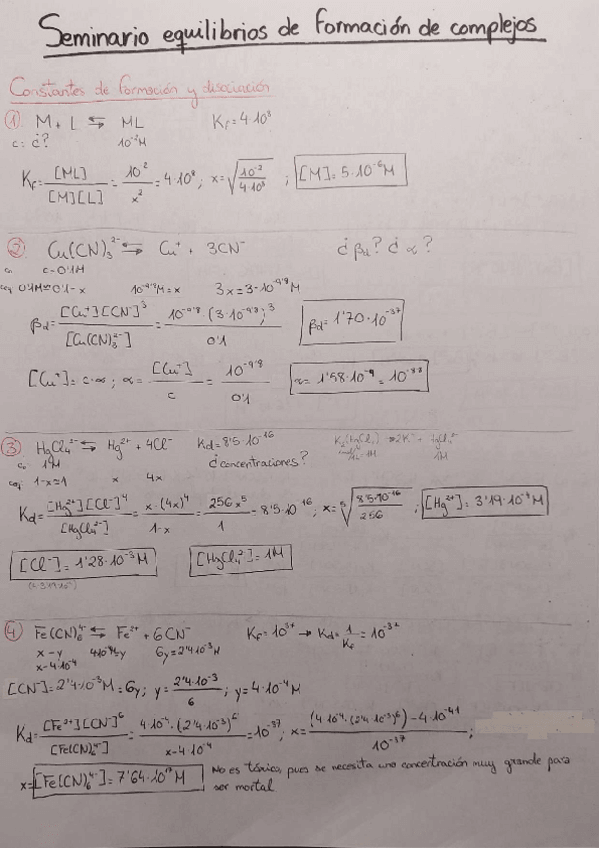 Seminario equilibrios de formación de complejos
Constantes de formación y disociación
① M + L ⇆ ML Kf = 4·10⁸
c: ¿? 10⁻²M
Kf = [ML]/[M][L] = 10²/x² = 4·10⁸ ; x = √(10⁻²/4·10⁸) ; [M] = 5·10⁻⁶M
② Cu(CN)₃²⁻ ⇆ Cu⁺ + 3CN⁻ ¿βd? ¿α?
c₀ c=0'1M
ceq 0'1M≈0'1-x 10⁻⁹'⁸M=x 3x=3·10⁻⁹'⁸M
βd = [Cu⁺][CN⁻]³/[Cu(CN)₃²⁻] = 10⁻⁹'⁸·(3·10⁻⁹'⁸)³/0'1 βd = 1'70·10⁻³⁷
[Cu⁺] = c·α ; α = [Cu⁺]/c = 10⁻⁹'⁸/0'1 α = 1'58·10⁻⁹ = 10⁻⁸'⁸
③ HgCl₄²⁻ ⇆ Hg²⁺ + 4Cl⁻ Kd = 8'5·10⁻¹⁶
c₀ 1M ¿concentraciones?
ceq 1-x≈1 x 4x
Kd = [Hg²⁺][Cl⁻]⁴/[HgCl₄²⁻] = x·(4x)⁴/1-x = 256x⁵/1 = 8'5·10⁻¹⁶ ; x = ⁵√(8'5·10⁻¹⁶/256) ; [Hg²⁺] = 3'19·10⁻⁴M
[Cl⁻] = 1'28·10⁻³M [HgCl₄²⁻] = 1M
④ Fe(CN)₆⁴⁻ ⇆ Fe²⁺ + 6CN⁻ Kf = 10³⁷ → Kd = 1/Kf = 10⁻³⁷
x-y 4·10⁻⁴M=y 6y=2'4·10⁻³M
x-4·10⁻⁴
[CN⁻] = 2'4·10⁻³M = 6y ; y = 2'4·10⁻³/6 ; y = 4·10⁻⁴M
Kd = [Fe²⁺][CN⁻]⁶/[Fe(CN)₆⁴⁻] = 4·10⁻⁴·(2'4·10⁻³)⁶/x-4·10⁻⁴ = 10⁻³⁷ ; x = (4·10⁻⁴·(2'4·10⁻³)⁶)-4·10⁻⁴¹/10⁻³⁷ ;
x = [Fe(CN)₆⁴⁻] = 7'64·10¹⁷M No es tóxico, pues se necesita una concentración muy grande para
ser mortal